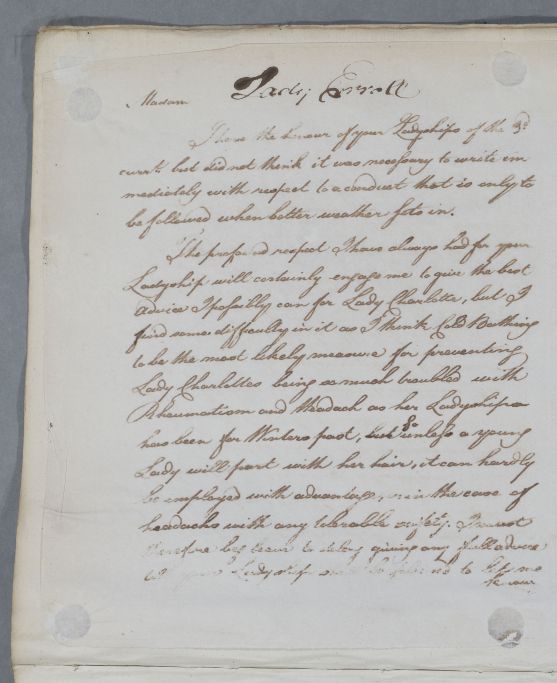 Lady Erroll
Madam
I have the honour of your Ladyships of the 3d
currt. but did not think it was necessary to write im
mediately with respect to a conduct that is only to
be followed when better weather sets in.
The profound respect I have always had for your
Ladyship will certainly engage me to give the best
advice I possibly can for Lady Charlotte, but I
find some difficulty in it as I think Cold Bathing
to be the most likely measure for preventing
Lady Charlottes being so much troubled with
Rheumatism and Headach as her Ladyship
has been for Winters past, but unless a young
Lady will part with her hair, it can hardly
be employed with advantage, in the case of
headachs with any tolerable safety. I must
therefore beg leave to delay giving any full advice
Ladyship to let me
know